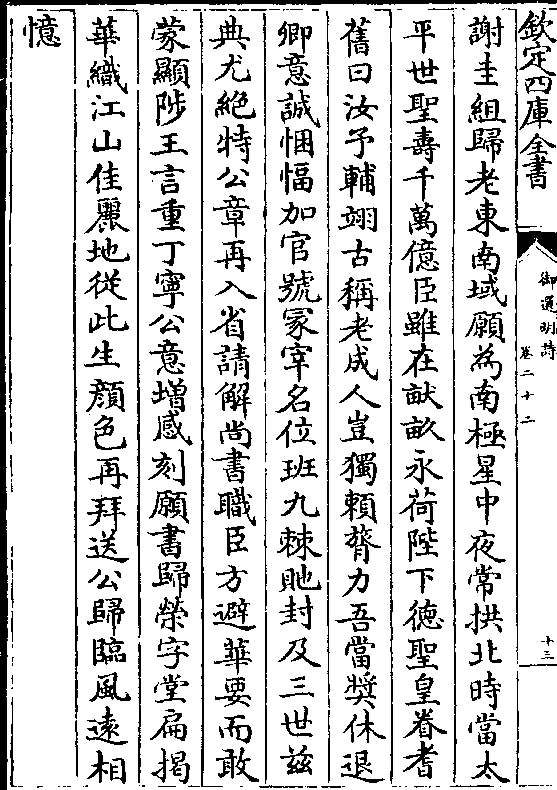 欽定四庫全書
御選明詩
卷二十二
十三
謝圭組歸老東南域願為南極星中夜常拱北時當太
平世聖壽千萬億臣雖在畎畝永荷陛下德聖皇眷耆
舊曰汝予輔翊古稱老成人豈獨賴膂力吾當奬休退
卿意誠悃愊加官號冢宰名位班九棘貤封及三世兹
典尤絶特公章再入省請解尚書職臣方避華要而敢
蒙顯陟王言重丁寧公意增感刻願書歸榮字堂扁揭
華織江山佳麗地從此生顔色再拜送公歸臨風遠相
憶